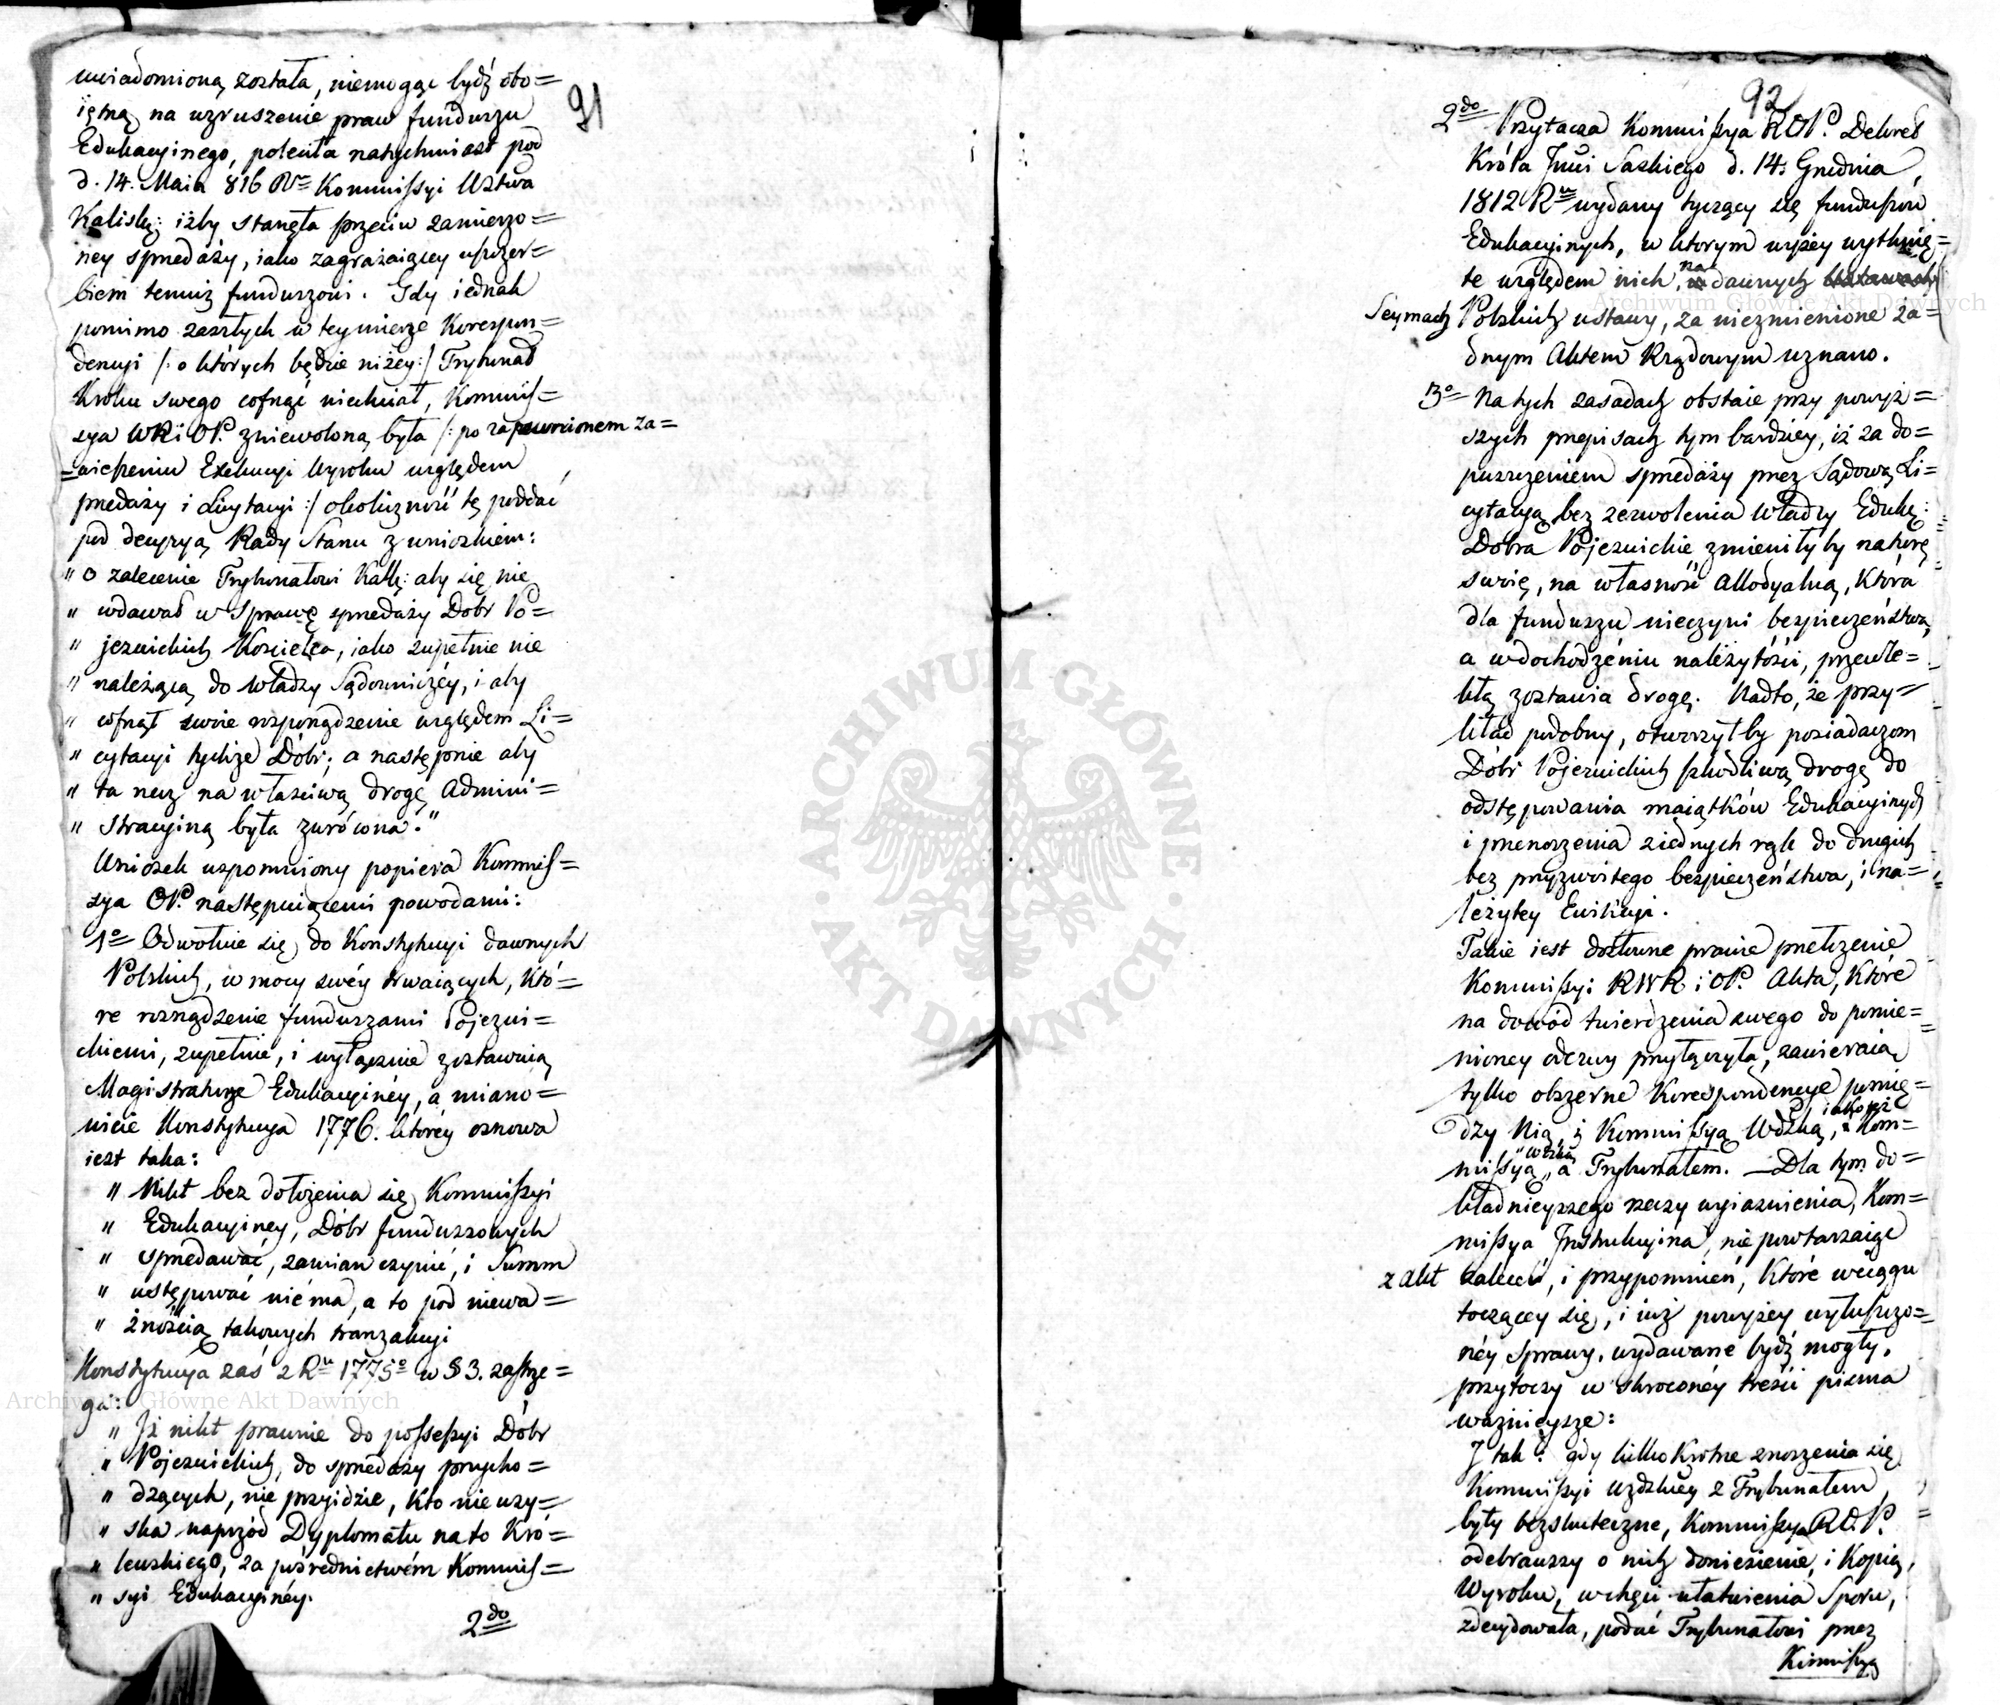 91
uwiadomioną została, niemogąc bydź obo=
iętną na wzruszenie praw funduszu
Edukacyinego, poleciła natychmiast pod
d. 14. Maia 816 Ru Kommissyi Wztwa
Kaliskg: iżby stanęła przeciw zamierzo=
ney sprzedaży, iako zagrażaiącey uszczer=
biem temuż funduszowi. Gdy iednak
pomimo zaszłych w tey mierze Korespon=
dencyi /: o których będzie niżey :/ Trybunał
Kroku swego cofnąć niechciał, Kommis=
sya WR i OP. zniewoloną była /: po zapewnionem za=
=wieszeniu Exekucyi Wyroku względem
przedaży i Licytacyi :/ okoliczność tę poddać
pod decyzyą Rady Stanu z wnioskiem:
" O zalecenie Trybunałowi Kallg: aby się nie
" wdawał w Sprawę sprzedaży Dobr Po=
" jezuickich Kościelca, iako zupełnie nie
" należącą do Władzy Sądowniczéy, i aby
" cofnął swoie rozporządzenie względem Li=
" cytacyi tychże Dóbr; a następnie aby
" ta rzecz na właściwą drogę Admini=
" stracyiną była zwrócona."
Wniosek wspomniony popiera Kommis=
sya OP. następuiącemi powodami:
1o Odwołuie się do Konstytucyi dawnych
Polskich, w mocy swéy trwaiących, Któ=
re rozrządzenie funduszami Pojezui=
ckiemi, zupełnie, i wyłącznie zostawuią
Magistraturze Edukacyinéy, a miano=
wicie Konstytucya 1776. któréy osnowa
iest taka:
" Nikt bez dołożenia się Kommissyi
" Edukacyiney, Dóbr funduszowych
" sprzedawać, zamian czynić, i Summ
" ustępować nié má, a to pod niewa=
" żnością takowych tranzakcyi
Konstytucya zaś z Ru 1775o w § 3. zastrze=
ga:
" Iż nikt prawnie do possessyi Dóbr
" Pojezuickich, do sprzedaży przycho=
" dzących, nie przyidzie, Kto nie uzy=
" ska naprzód Dyplomatu na to Kró=
" lewskiego, za pośrednictwém Kommis=
" syi Edukacyinéy.
2do
92
2do Przytacza Kommissya ROP. Dekret
Króla Jmci Saskiego d. 14. Grudnia
1812 Ru wydany tyczący się funduszów
Edukacyinych, w ktorym wyżey wytknię=
te względem nich, na dawnych
Seymach Polskich ustawy, za niezmienione ża=
dnym Aktem Rządowym uznano.
3o Na tych zasadach obstaie przy powyż=
szych przepisach tym bardziey, iż za do=
puszczeniem sprzedaży przez Sądową Li=
cytacyą bez zezwolenia Władzy Edukg:
Dobra Pojezuickie zmieniłyby naturę
swoię, na własność Allodyalną, Która
dla funduszu nieczyni bezpieczeństwa,
a w dochodzéniu należytości, przewle=
kłą zostawia drogę. Nadto, że przy=
kład podobny, otworzyłby posiadaczom
Dóbr Pojezuickich szkodliwą drogę do
odstępowania maiątków Edukacyinych
i przenoszenia z iednych rąk do drugich
bez przyzwoitego bezpieczeństwa, i na=
leżytey Ewikcyi.
Takie iest dosłowne prawie przełożenie
Kommissyi RWR i OP. Akta, Które
na dowód twierdzenia swego do pomie=
nioney odezwy przyłączyła, zawieraią
tylko obszerne Korespondencye pomię=
dzy Nią, i Kommissyą Wdzką, iakoteż Kom=
missyą Wdzką, a Trybunałem. — Dla tym do=
kładnieyszego rzeczy wyiaśnienia, Kom=
missya Instrukcyina, nie powtarzaiąc
z Akt zaleceń, i przypomnień, Które w ciągu
toczącey się, i iuż powyżey wyłuszczo=
néy Sprawy, wydawane bydź mogły,
przytoczy w skroconéy treści pisma
ważnieysze:
I tak: gdy kilkoKrotne znoszenia się
Kommissyi wzdzkiey z Trybunałem,
były bezskuteczne, Kommissya ROP.
odebrawszy o nich doniesienie, i Kopią
Wyroku, w chęci ułatwienia Sporu,
zdecydowała, podać Trybunałowi przez
Kommissyą